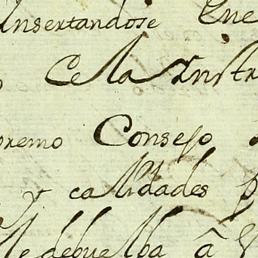 Insertandose Ene
Cela Instr
premo Consejo
y calidades
le debuelba â